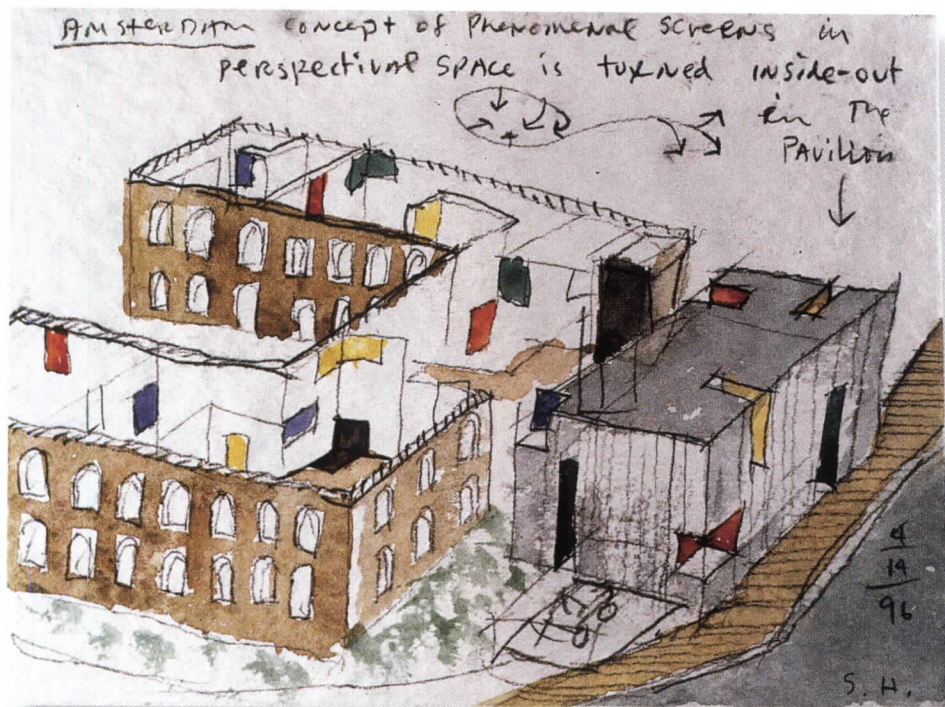 AMSTERDAM CONCEPT OF PHENOMENAL SCREENS IN
PERSPECTIVAL SPACE IS TURNED INSIDE-OUT
IN THE
PAVILION
4
19
96
S. H.